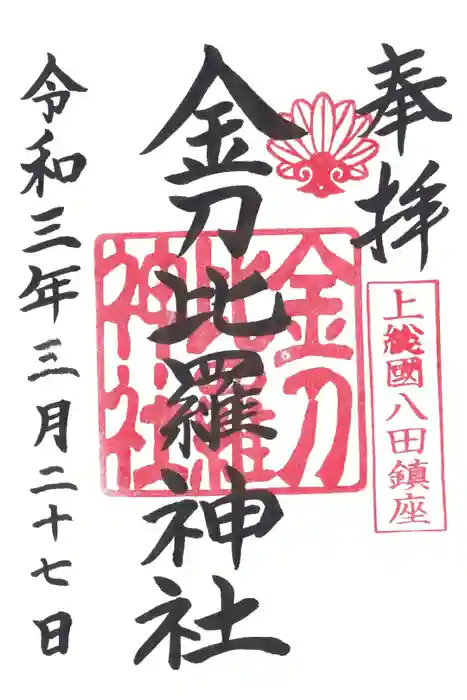 奉拝
上総國八田鎮座
金刀比羅神社
金刀比羅神社
令和三年三月二十七日